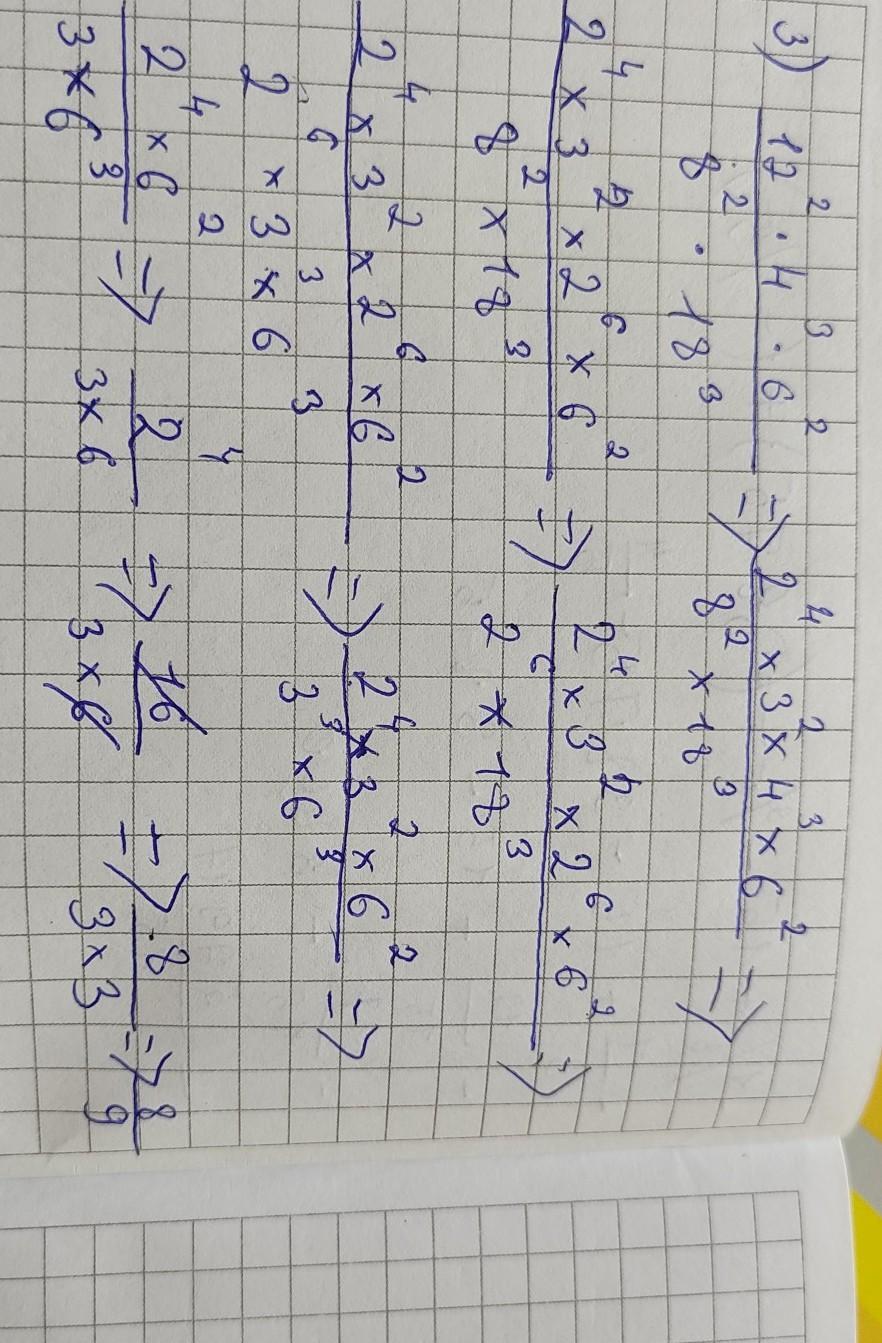 3) 12² · 4³ · 6² / 8² · 18³ => 2⁴ × 3² × 4³ × 6² / 8² × 18³ =>
2⁴ × 3² × 2⁶ × 6² / 8² × 18³ => 2⁴ × 3² × 2⁶ × 6² / 2⁶ × 18³ =>
2⁴ × 3² × 2⁶ × 6² / 2⁶ × 3³ × 6³ => 2⁴ × 3² × 6² / 3³ × 6³ =>
2⁴ × 6² / 3 × 6³ => 2⁴ / 3 × 6 => 16 / 3 × 6 => 8 / 3 × 3 => 8 / 9